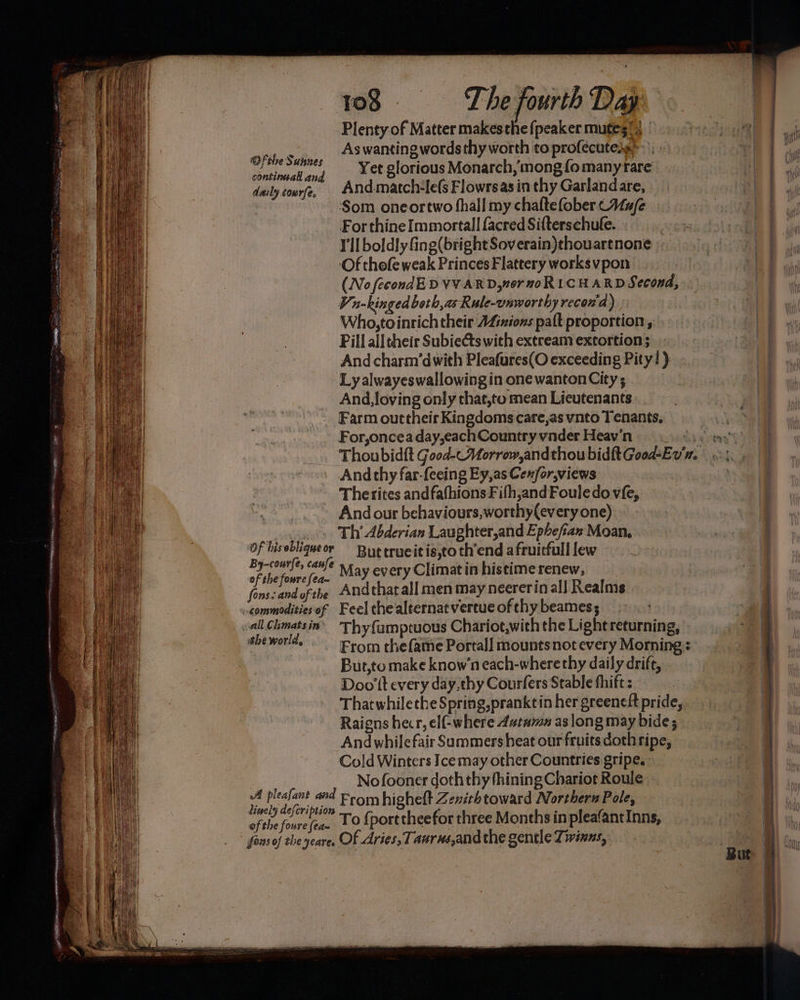 108 The fourth Day
Plenty of Matter makes the ſpeaker mute;
As wanting words thy worth to proſecute.
Of the Sunnes continuall and daily courſe,
Yet glorious Monarch, 'mong ſo many rare
And match-leſs Flowrs as in thy Garland are,
Som one or two ſhall my chaſte ſober Muſe
For thine Immortall ſacred Siſters chuſe.
I'll boldly ſing (bright Soverain) thou art none
Of thoſe weak Princes Flattery works vpon
(No ſecond EDVVARD, nor no RICHARD Second,
Vn-kinged both, as Rule-vnworthy recon'd)
Who, to inrich their Minions paſt proportion,
Pill all their Subiects with extream extortion;
And charm'd with Pleaſures (O exceeding Pity!)
Ly alwayes wallowing in one wanton City;
And, loving only that, to mean Lieutenants
Farm out their Kingdoms care, as vnto Tenants.
For, once a day, each Country vnder Heav'n
Thou bidſt Good-Morrow, and thou bidſt Good-Ev'n.
And thy far-ſeeing Ey, as Cenſor, views
The rites and faſhions Fiſh, and Foule do vſe,
And our behaviours, worthy (every one)
Th' Abderian Laughter, and Epheſian Moan.
Of his oblique or By-courſe, cauſe of the foure ſea-ſons: and of the commodities of all Climats in the world.
But true it is, to th'end a fruitfull lew
May every Climat in his time renew,
And that all men may neerer in all Realms
Feel the alternat vertue of thy beames;
Thy ſumptuous Chariot, with the Light returning,
From the ſame Portall mounts not every Morning:
But, to make know'n each-where thy daily drift,
Doo'ſt every day, thy Courſers Stable ſhift:
That while the Spring, prankt in her greeneſt pride,
Raigns heer, elſ-where Autumn as long may bide;
And while fair Summers heat our fruits doth ripe,
Cold Winters Ice may other Countries gripe.
A pleaſant and liuely deſcription of the foure ſea-ſons of the yeare.
No ſooner doth thy ſhining Chariot Roule
From higheſt Zenith toward Northern Pole,
To ſport thee for three Months in pleaſant Inns,
Of Aries, Taurus, and the gentle Twinns,
But